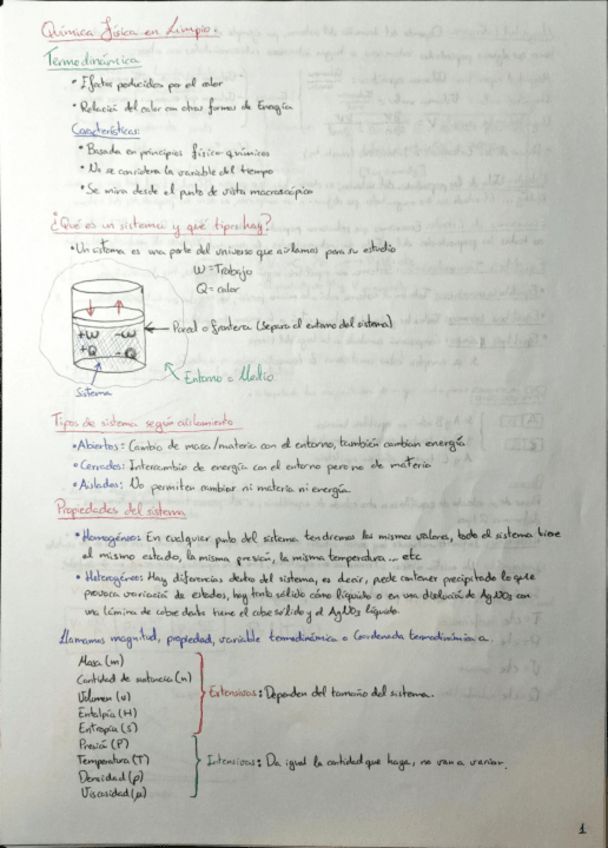 Química física en Limpio.
Termodinámica
• Efectos producidos por el calor
• Relación del calor con otras formas de Energía
Características:
• Basada en principios físico-químicos
• No se considera la variable del tiempo
• Se mira desde el punto de vista macroscópico
¿Qué es un sistema y qué tipos hay?
• Un sistema es una parte del universo que aislamos para su estudio
W = Trabajo
Q = calor
+W -W
+Q -Q
Pared o frontera (separa el entorno del sistema)
Entorno = Medio
Sistema
Tipos de sistema según aislamiento
• Abiertos: Cambio de masa/materia con el entorno, también cambian energía
• Cerrados: Intercambio de energía con el entorno pero no de materia
• Aislados: No permiten cambiar ni materia ni energía
Propiedades del sistema
• Homogéneos: En cualquier punto del sistema tendremos los mismos valores, todo el sistema tiene
el mismo estado, la misma presión, la misma temperatura... etc
• Heterogéneos: Hay diferencias dentro del sistema, es decir, puede contener precipitado lo que
provoca variación de estados, hay tanto sólido cómo líquido o en una disolución de AgNO3 con
una lámina de cobre donde tiene el cobre sólido y el AgNO3 líquido.
Llamamos magnitud, propiedad, variable termodinámica o Coordenada termodinámica a:
Masa (m)
Cantidad de sustancia (n)
Volumen (v)
Entalpía (H)
Entropía (S)
Extensivas: Dependen del tamaño del sistema.
Presión (P)
Temperatura (T)
Densidad (ρ)
Viscosidad (μ)
Intensivas: Da igual la cantidad que haya, no van a variar.
1